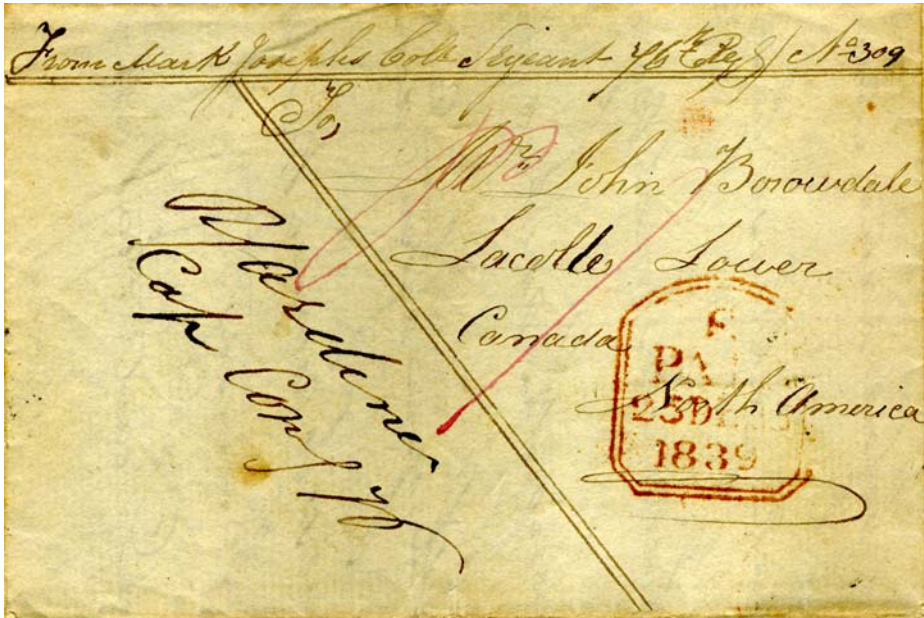 From Mark Josephs Colr Serjeant 76th Regt No 309
To,
Mr John Borowdale
Lacolle Lower
Canada
North America
Gardiner
Cap Com 76
PA
25D
1839